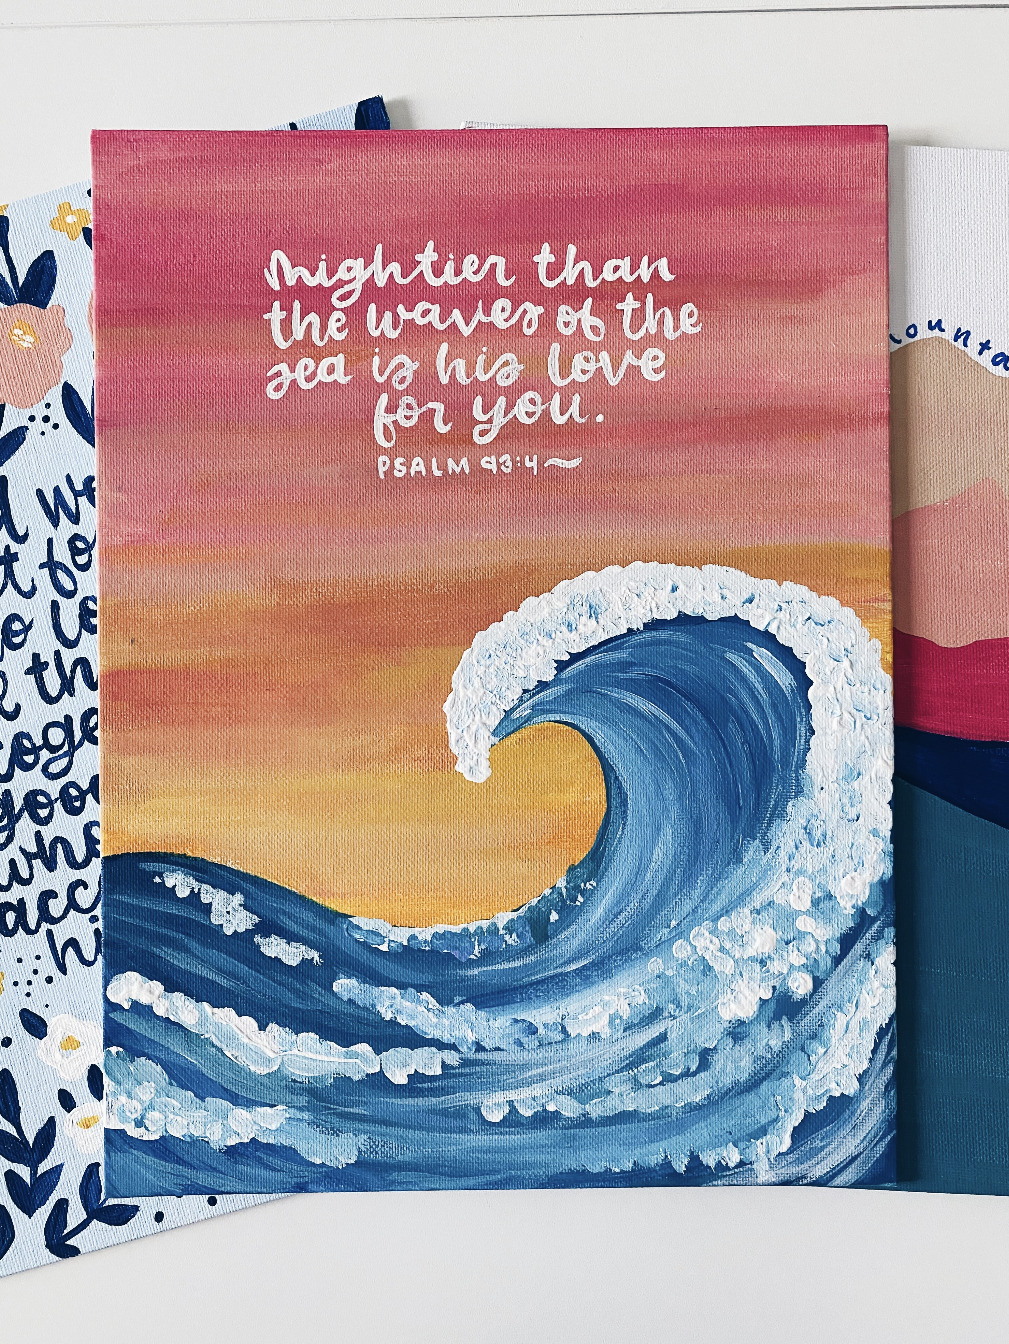 mightier than
the waves of the
sea is his love
for you.
PSALM 93:4~
d we
fo
lo
th
toge
good
who
acc
hi
mounta